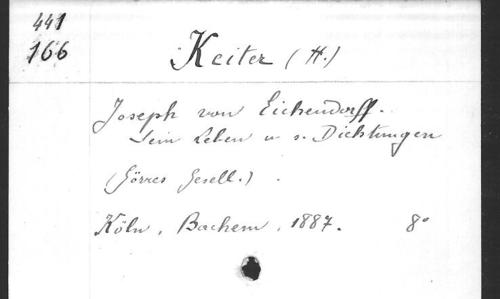 441
166
Keiter (H.)
Joseph von Eichendorff.
Sein Leben u s. Dichtungen
(Görres Gesell.)
Köln, Bachem, 1887. 8°